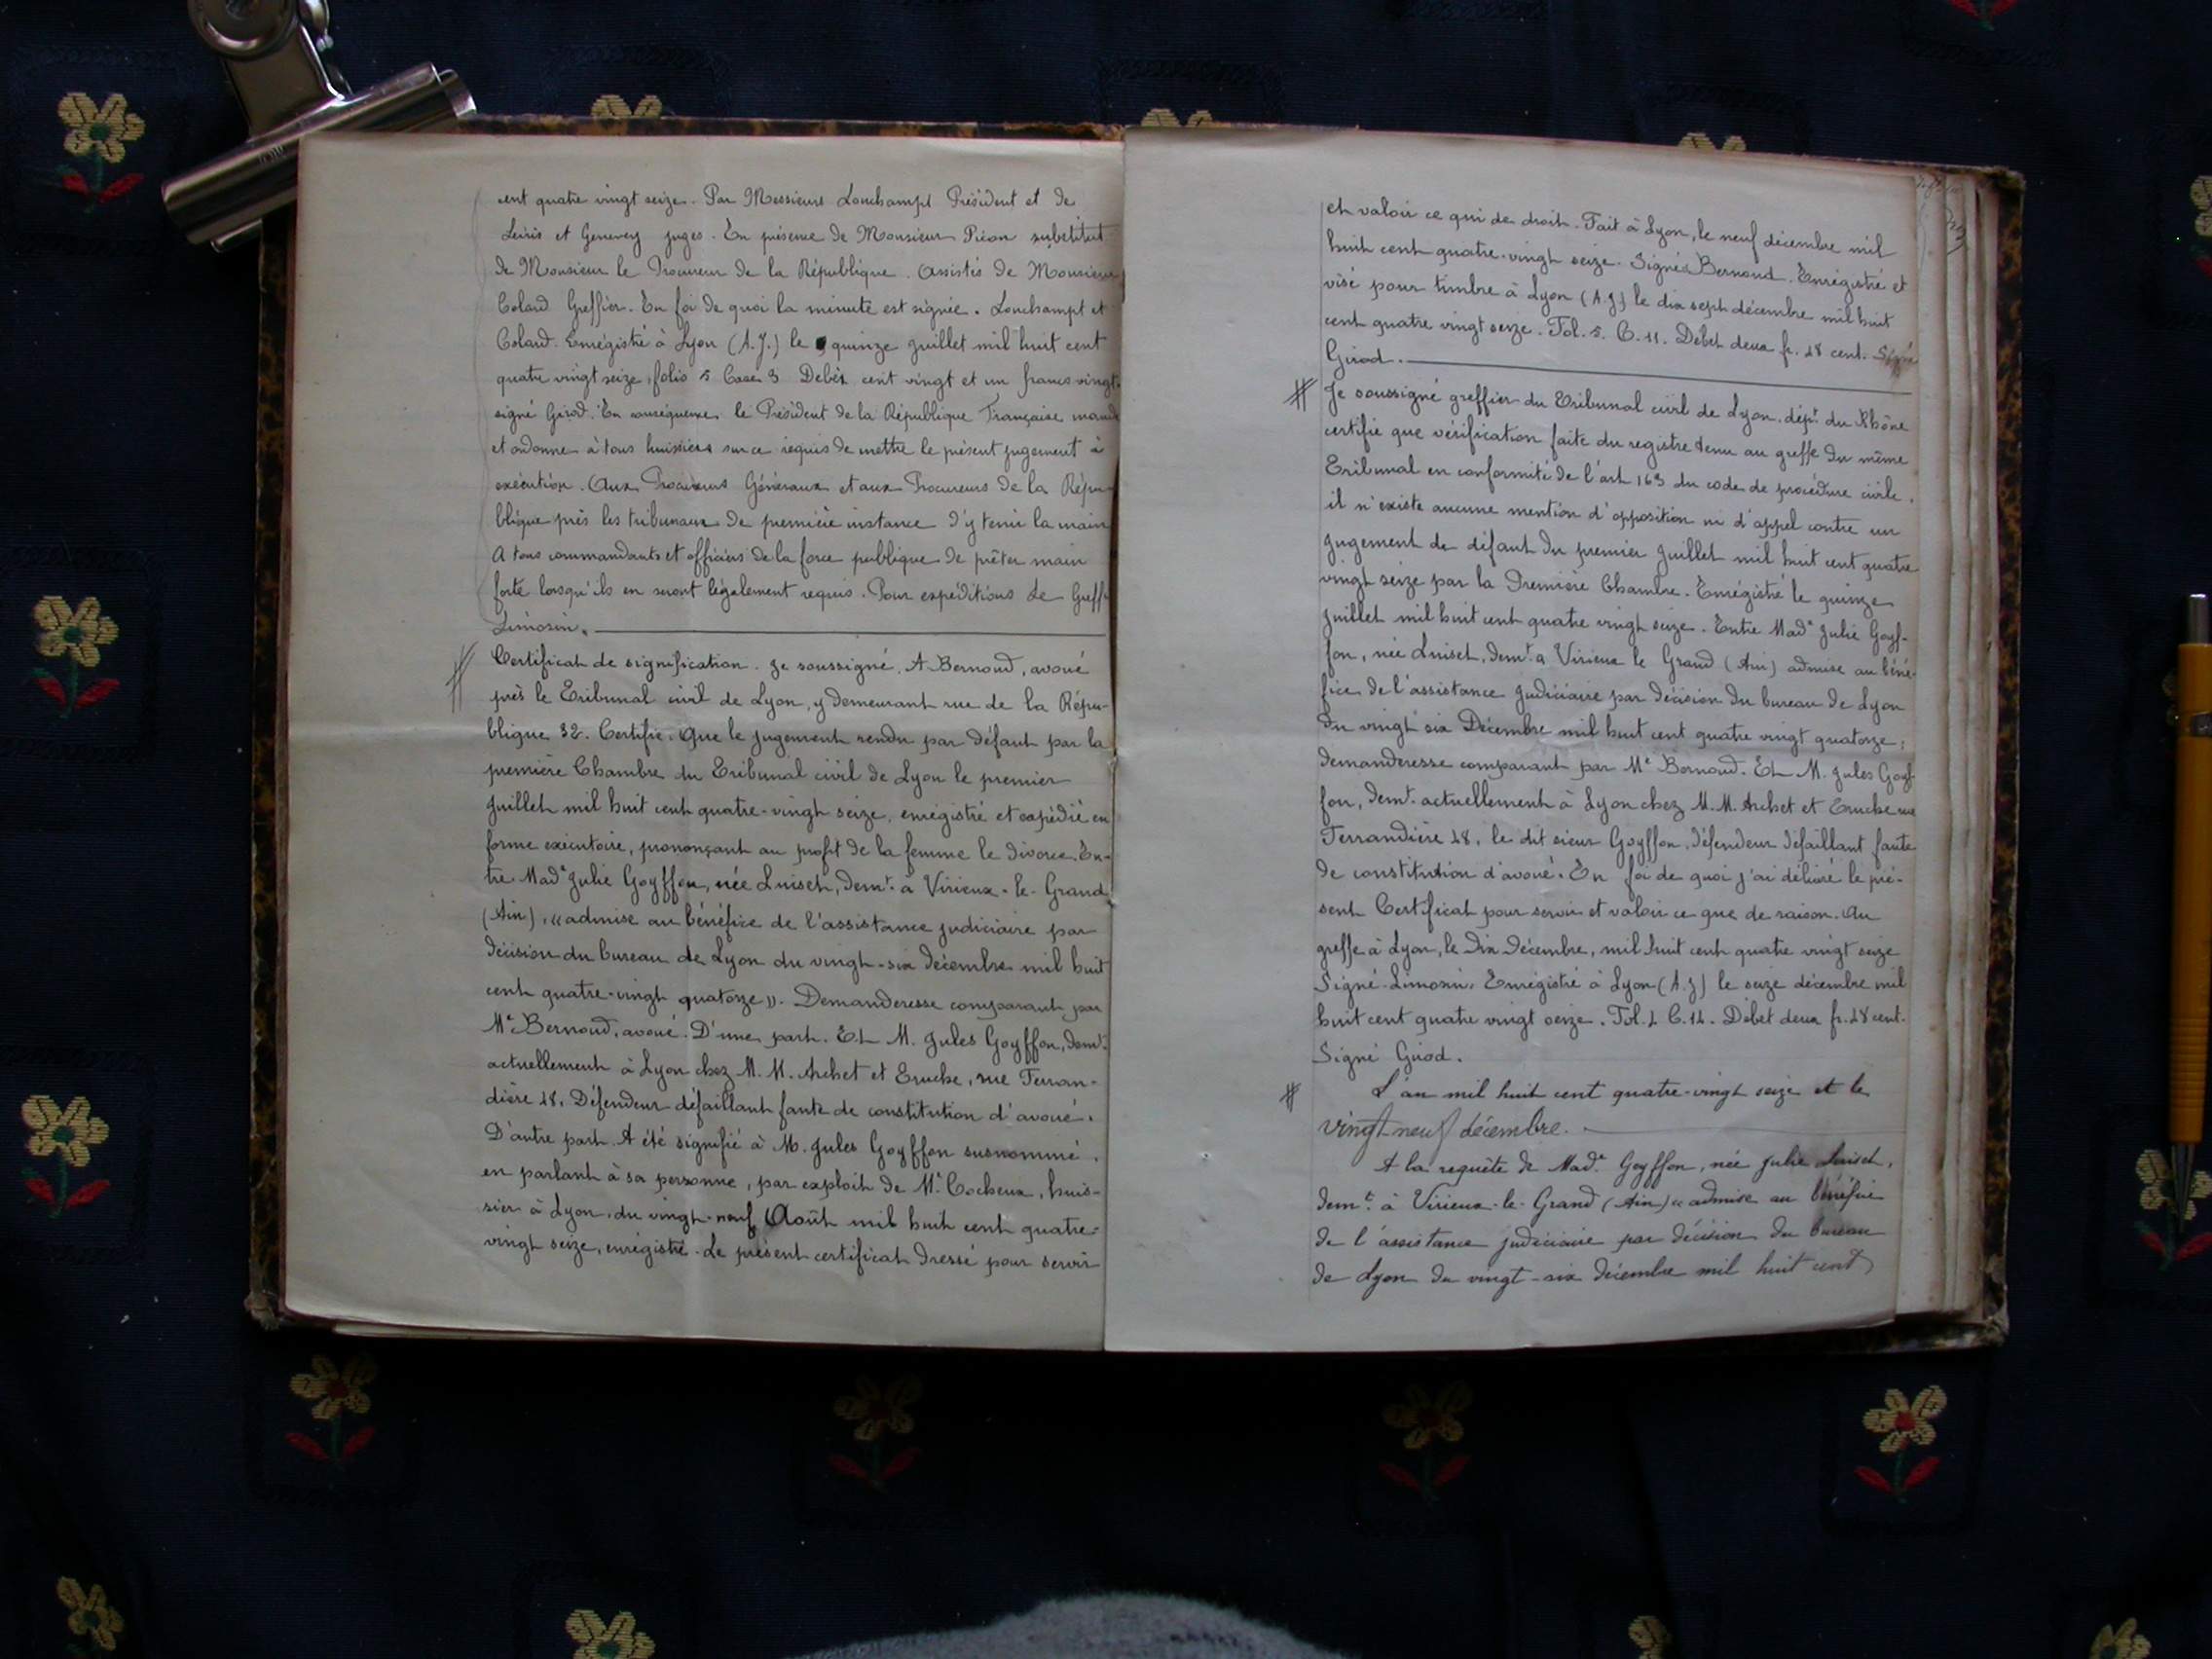 cent quatre vingt seize. Par Messieurs Lonchampt Président et de
Leiris et Genevey juges. En présence de Monsieur Picon substitut
de Monsieur le Procureur de la République. Assistés de Monsieur
Colard Greffier. En foi de quoi la minute est signée. Lonchampt et
Colard. Enrégistré à Lyon (A.J.) le quinze juillet mil huit cent
quatre vingt seize, folio 5 Case 3 Debet cent vingt et un francs vingt.
signé Girod. En conséquence le Président de la République Française mande
et ordonne à tous huissiers sur ce requis de mettre le présent jugement à
exécution. Aux Procureurs Généraux et aux Procureurs de la Répu-
blique près les tribunaux de première instance d'y tenir la main
A tous commandants et officiers de la force publique de prêter main
forte lorsqu'ils en seront légalement requis. Pour expéditions Le Greff
Limosin.
Certificat de signification. Je soussigné, A Bernoud, avoué
près le Tribunal civil de Lyon, y demeurant rue de la Répu-
blique 32. Certifie: Que le jugement rendu par défaut par la
première Chambre du Tribunal civil de Lyon le premier
juillet mil huit cent quatre-vingt seize, enrégistré et expédié en
forme exécutoire, prononçant au profit de la femme le divorce. En-
tre Made Julie Goyffon, née Luiset, demt. à Virieux-le-Grand
(Ain), «admise au bénéfice de l'assistance judiciaire par
décision du bureau de Lyon du vingt-six décembre mil huit
cent quatre-vingt quatorze». Demanderesse comparant par
Me Bernoud, avoué. D'une part. Et M. Jules Goyffon, demt.
actuellement à Lyon chez M. M. Archet et Truche, rue Ferran-
dière 28. Défendeur défaillant faute de constitution d'avoué.
D'autre part. A été signifié à M. Jules Goyffon susnommé,
en parlant à sa personne, par exploit de Me Cocheux, huis-
sier à Lyon, du vingt-neuf Août mil huit cent quatre-
vingt seize, enrégistré. Le présent certificat dressé pour servir
et valoir ce qui de droit. Fait à Lyon, le neuf décembre mil
huit cent quatre-vingt seize. Signé: Bernoud. Enrégistré et
visé pour timbre à Lyon (A.J) le dix sept décembre mil huit
cent quatre vingt seize. Fol. 5. C. 11. Débet deux fr. 28 cent. Signé
Girod.
Je soussigné greffier du Tribunal civil de Lyon, dépt. du Rhône
certifie que vérification faite du registre tenu au greffe du même
Tribunal en conformité de l'art 163 du code de procédure civile,
il n'existe aucune mention d'opposition ni d'appel contre un
jugement de défaut du premier juillet mil huit cent quatre
vingt seize par la Première Chambre. Enrégistré le quinze
juillet mil huit cent quatre vingt seize. Entre Made Julie Goyf-
fon, née Luiset, demt. à Virieux le Grand (Ain) admise au béné-
fice de l'assistance judiciaire par décision du bureau de Lyon
du vingt six Décembre mil huit cent quatre vingt quatorze;
demanderesse comparant par Me Bernoud. Et M. Jules Goyf-
fon, demt. actuellement à Lyon chez M. M. Archet et Truche rue
Ferrandière 28, le dit sieur Goyffon, défendeur défaillant faute
de constitution d'avoué. En foi de quoi j'ai délivré le pré-
sent Certificat pour servir et valoir ce que de raison. Au
greffe à Lyon, le dix décembre, mil huit cent quatre vingt seize
Signé Limosin. Enrégistré à Lyon (A.J) le seize décembre mil
huit cent quatre vingt seize. Fol. 2 C. 12. Débet deux fr. 28 cent.
Signé Girod.
L'an mil huit cent quatre-vingt seize et le
vingt-neuf décembre.
A la requête de Made. Goyffon, née Julie Luiset,
demt. à Virieux-le-Grand (Ain) «admise au bénéfice
de l'assistance judiciaire par décision du bureau
de Lyon du vingt-six décembre mil huit cent